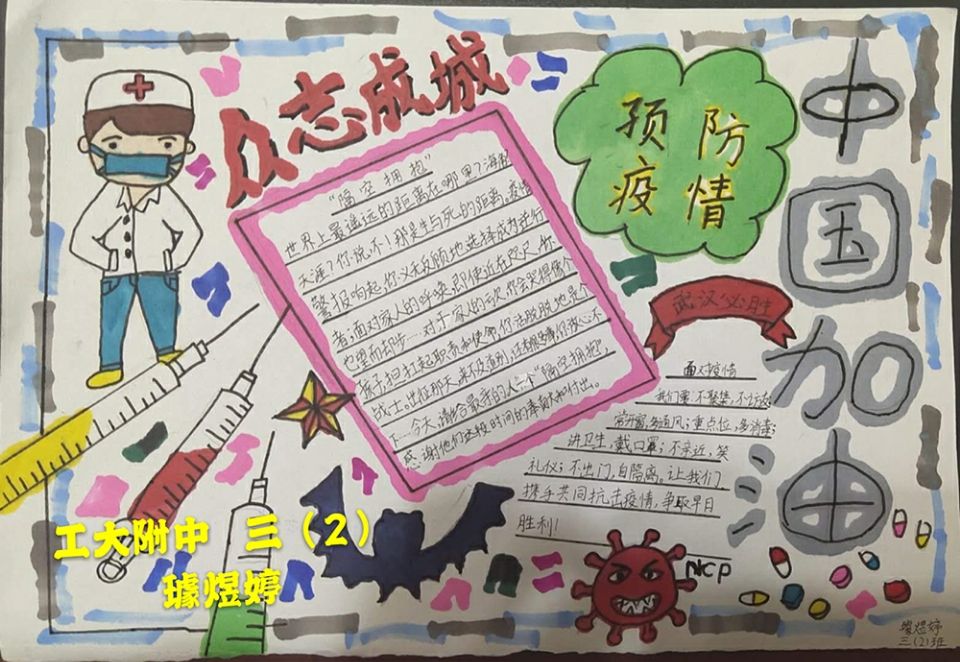 众志成城
预防
疫情
中国加油
"隔空拥抱"
世界上最遥远的距离在哪里？海角
天涯？你说，不！那是生与死的距离。疫情
警报响起，你义无反顾地选择成为逆行
者；面对家人的呼唤，即使近在咫尺，你
也望而却步……对于家人的
孩子，担扛起职责和使命，你活脱脱地是个
战士。出征那天，来不及道别，
下。今天，请给最亲的人一个"隔空拥抱"，
感谢他们这段时间的奉献和付出。
武汉必胜
面对疫情
我们要：不聚集，不
常开窗，多通风；重点位，多消毒；
讲卫生，戴口罩；不亲近，笑
礼仪；不出门，自隔离。让我们
携手共同抗击疫情，争取早日
胜利！
NCP
工大附中 三（2）
璩煜婷
璩煜婷
三（2）班